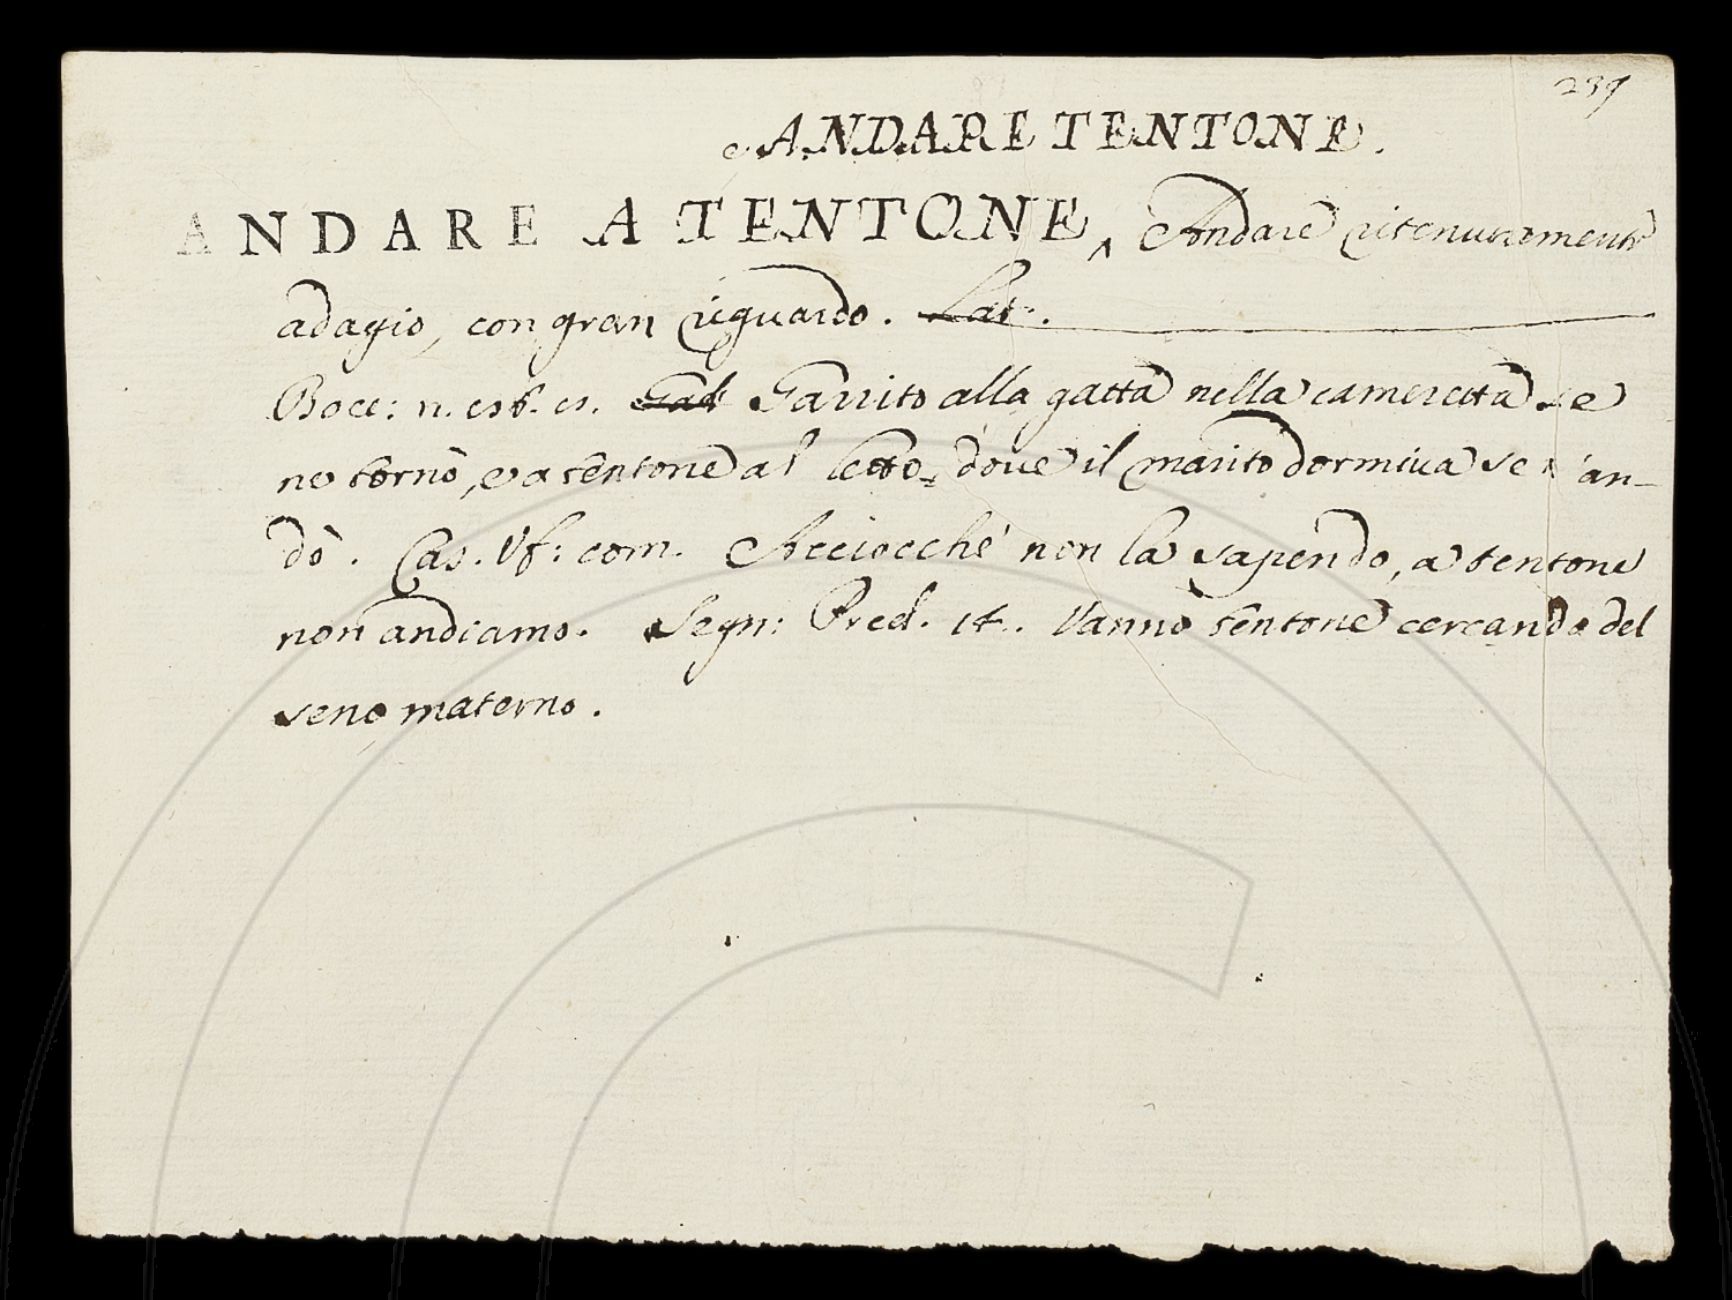 239
e ANDARE TENTONE.
ANDARE A TENTONE, ^ Andare ritenutamente
adagio, con gran riguardo. Lat.
Bocc: n. Gab Garrito alla gatta nella cameretta se
ne tornò, e a tentone al letto, dove il marito dormiva se n'an-
dò. Cas. Uf: com. Acciocché non la sapendo, a tentone
non andiamo. Segn: Pred. 14. Vanno tentone cercando del
seno materno.